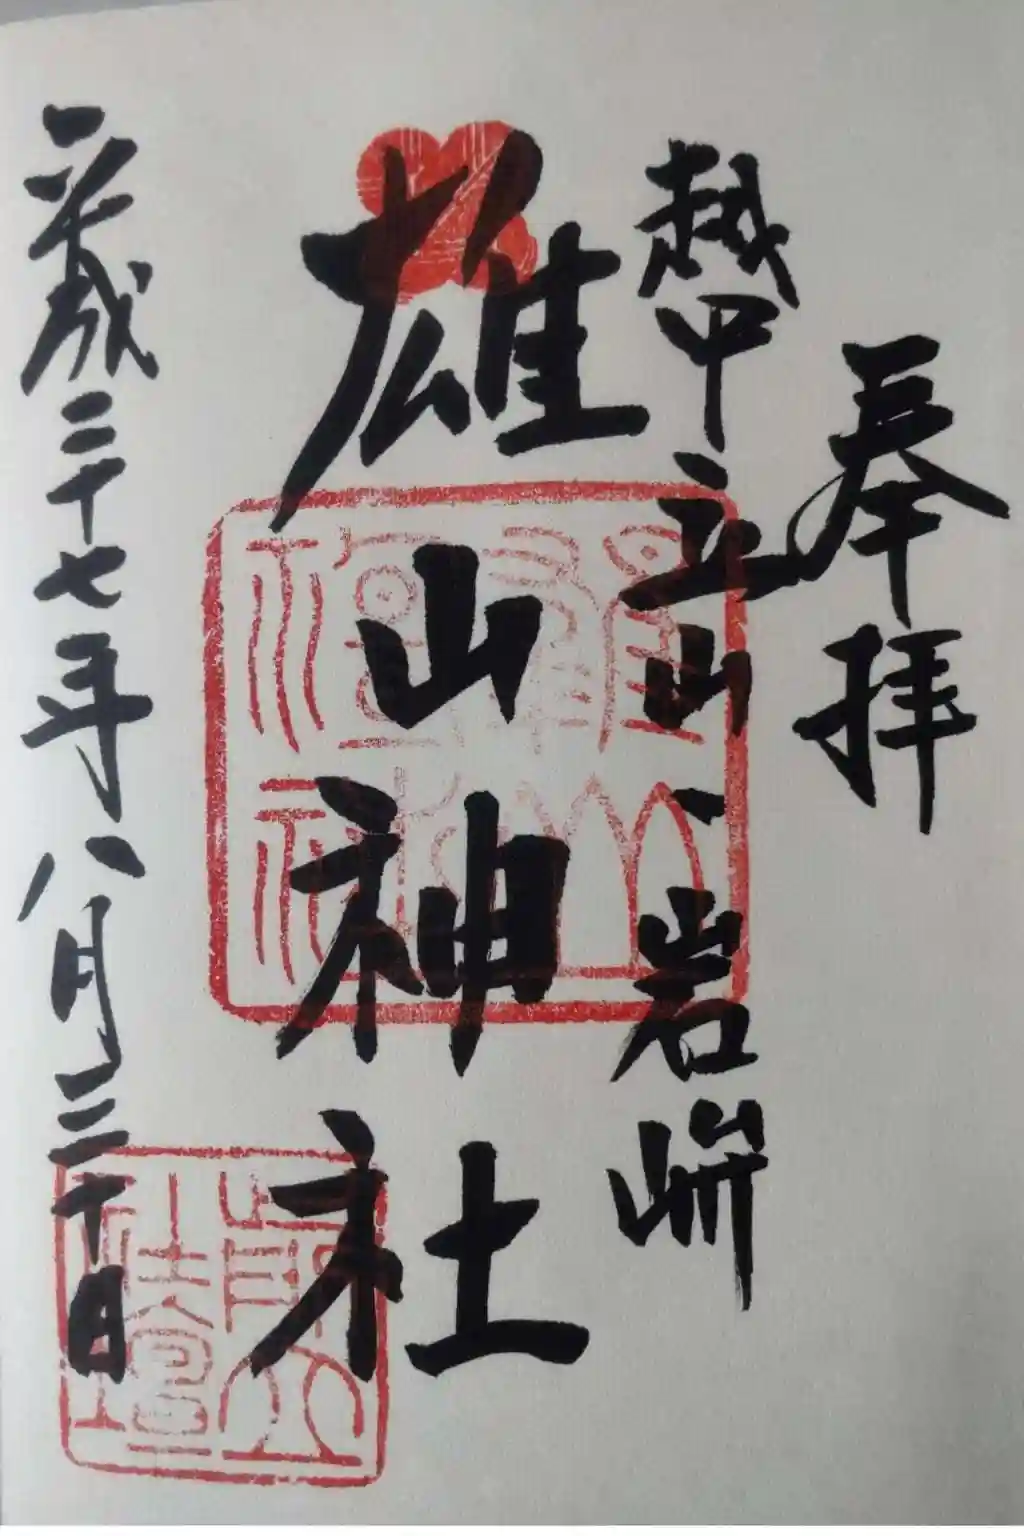 奉拝
越中立山
岩峅
雄山神社
平成二十七年八月三十日